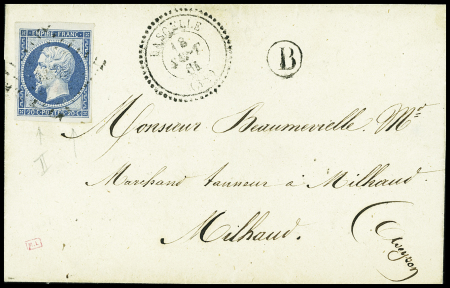 EMPIRE FRANC.
LASCELLE
18
B
Monsieur Beaumevielle, Md
Marchand tanneur à Milhaud.
Milhaud.
(Aveyron)
II